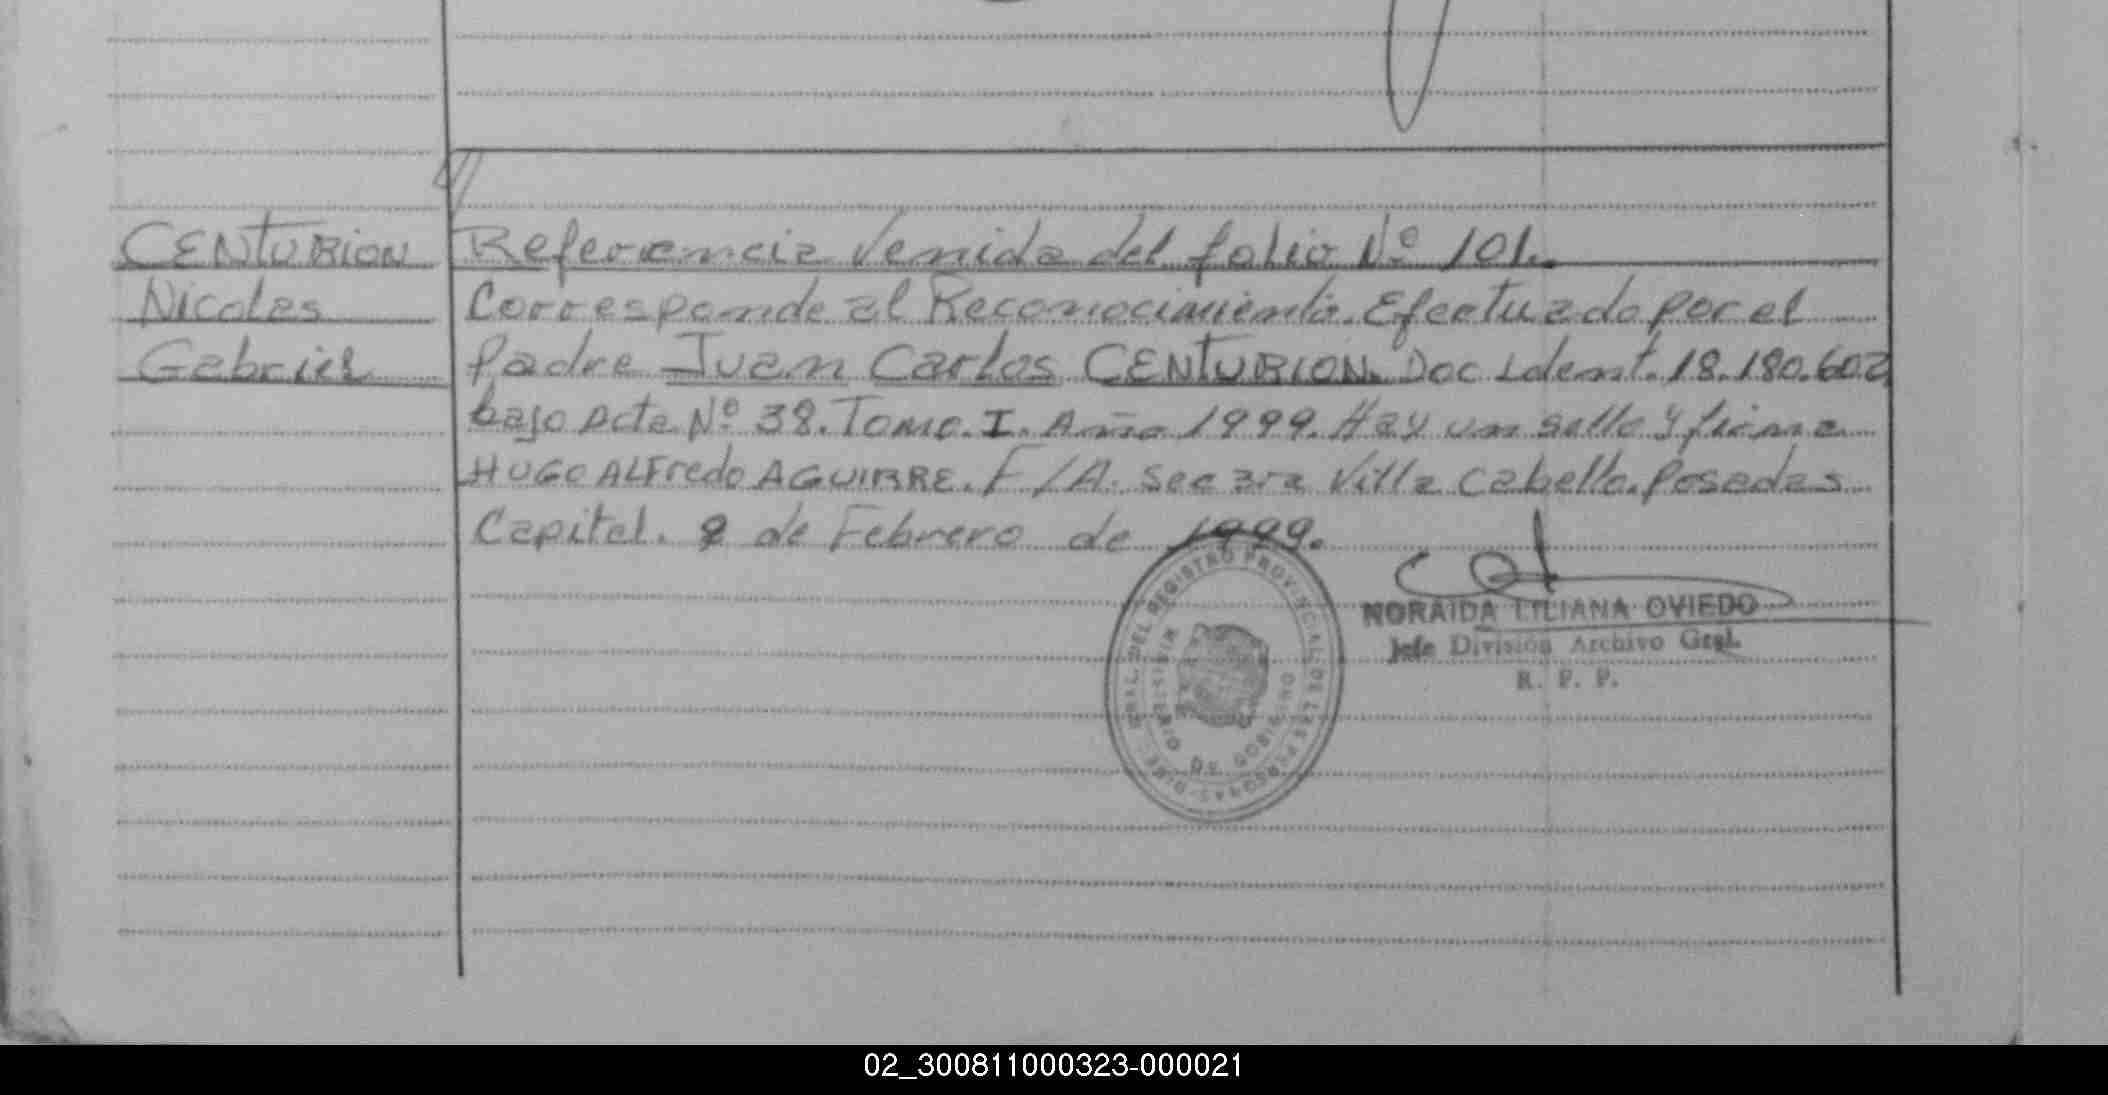 CENTURION Referencia Venida del folio Nº 101.
Nicolas Corresponde al Reconocimiento. Efectuado Por el
Gabriel Padre Juan Carlos CENTURION. Doc Ident. 18.180.602
bajo Acta Nº 38. Tomo. I. Año 1999. Hay un sello y firma
HUGO ALFredo AGUIRRE. F/A. Sec 3ra Villa Cabello. Posadas
Capital. 8 de Febrero de 1999.
DEL REGISTRO PROVINCIAL DE LAS PERSONAS
MINISTERIO DE GOBIERNO
NORAIDA LILIANA OVIEDO
Jefe División Archivo Gral.
R. P. P.
02_300811000323-000021